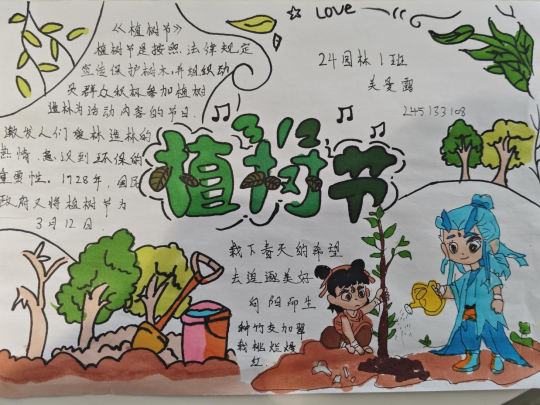 《植树节》
植树节是按照法律规定
宣传保护树木,并组织动
员群众积极参加植树
造林为活动内容的节日.
激发人们植林造林的
热情.意识到环保的
重要性。1928年,国民
政府又将植树节为
3月12日
LOVE
24园林1班
245133108
3.12
植树节
栽下春天的希望
去追逐美好
向阳而生
种竹交加翠
栽桃烂熳
红.